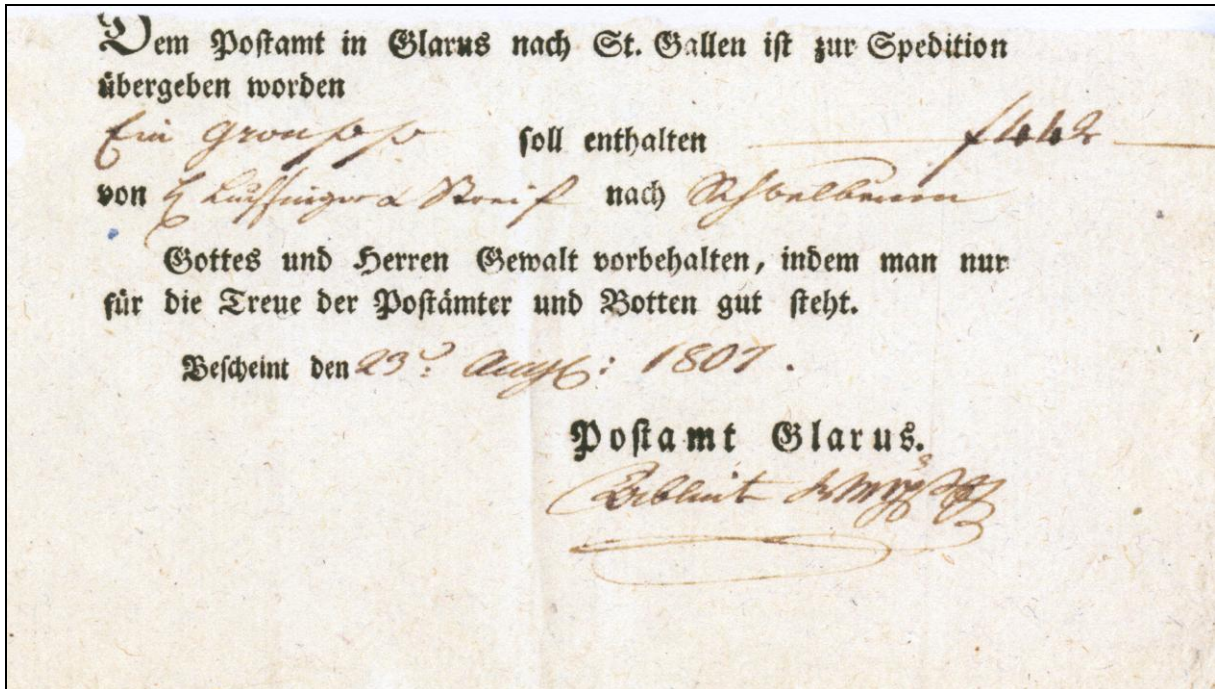 Dem Postamt in Glarus nach St. Gallen ist zur Spedition
übergeben worden
Ein soll enthalten
von & Streif nach
Gottes und Herren Gewalt vorbehalten, indem man nur
für die Treue der Postämter und Botten gut steht.
Bescheint den 23 Aug: 1807.
Postamt Glarus.